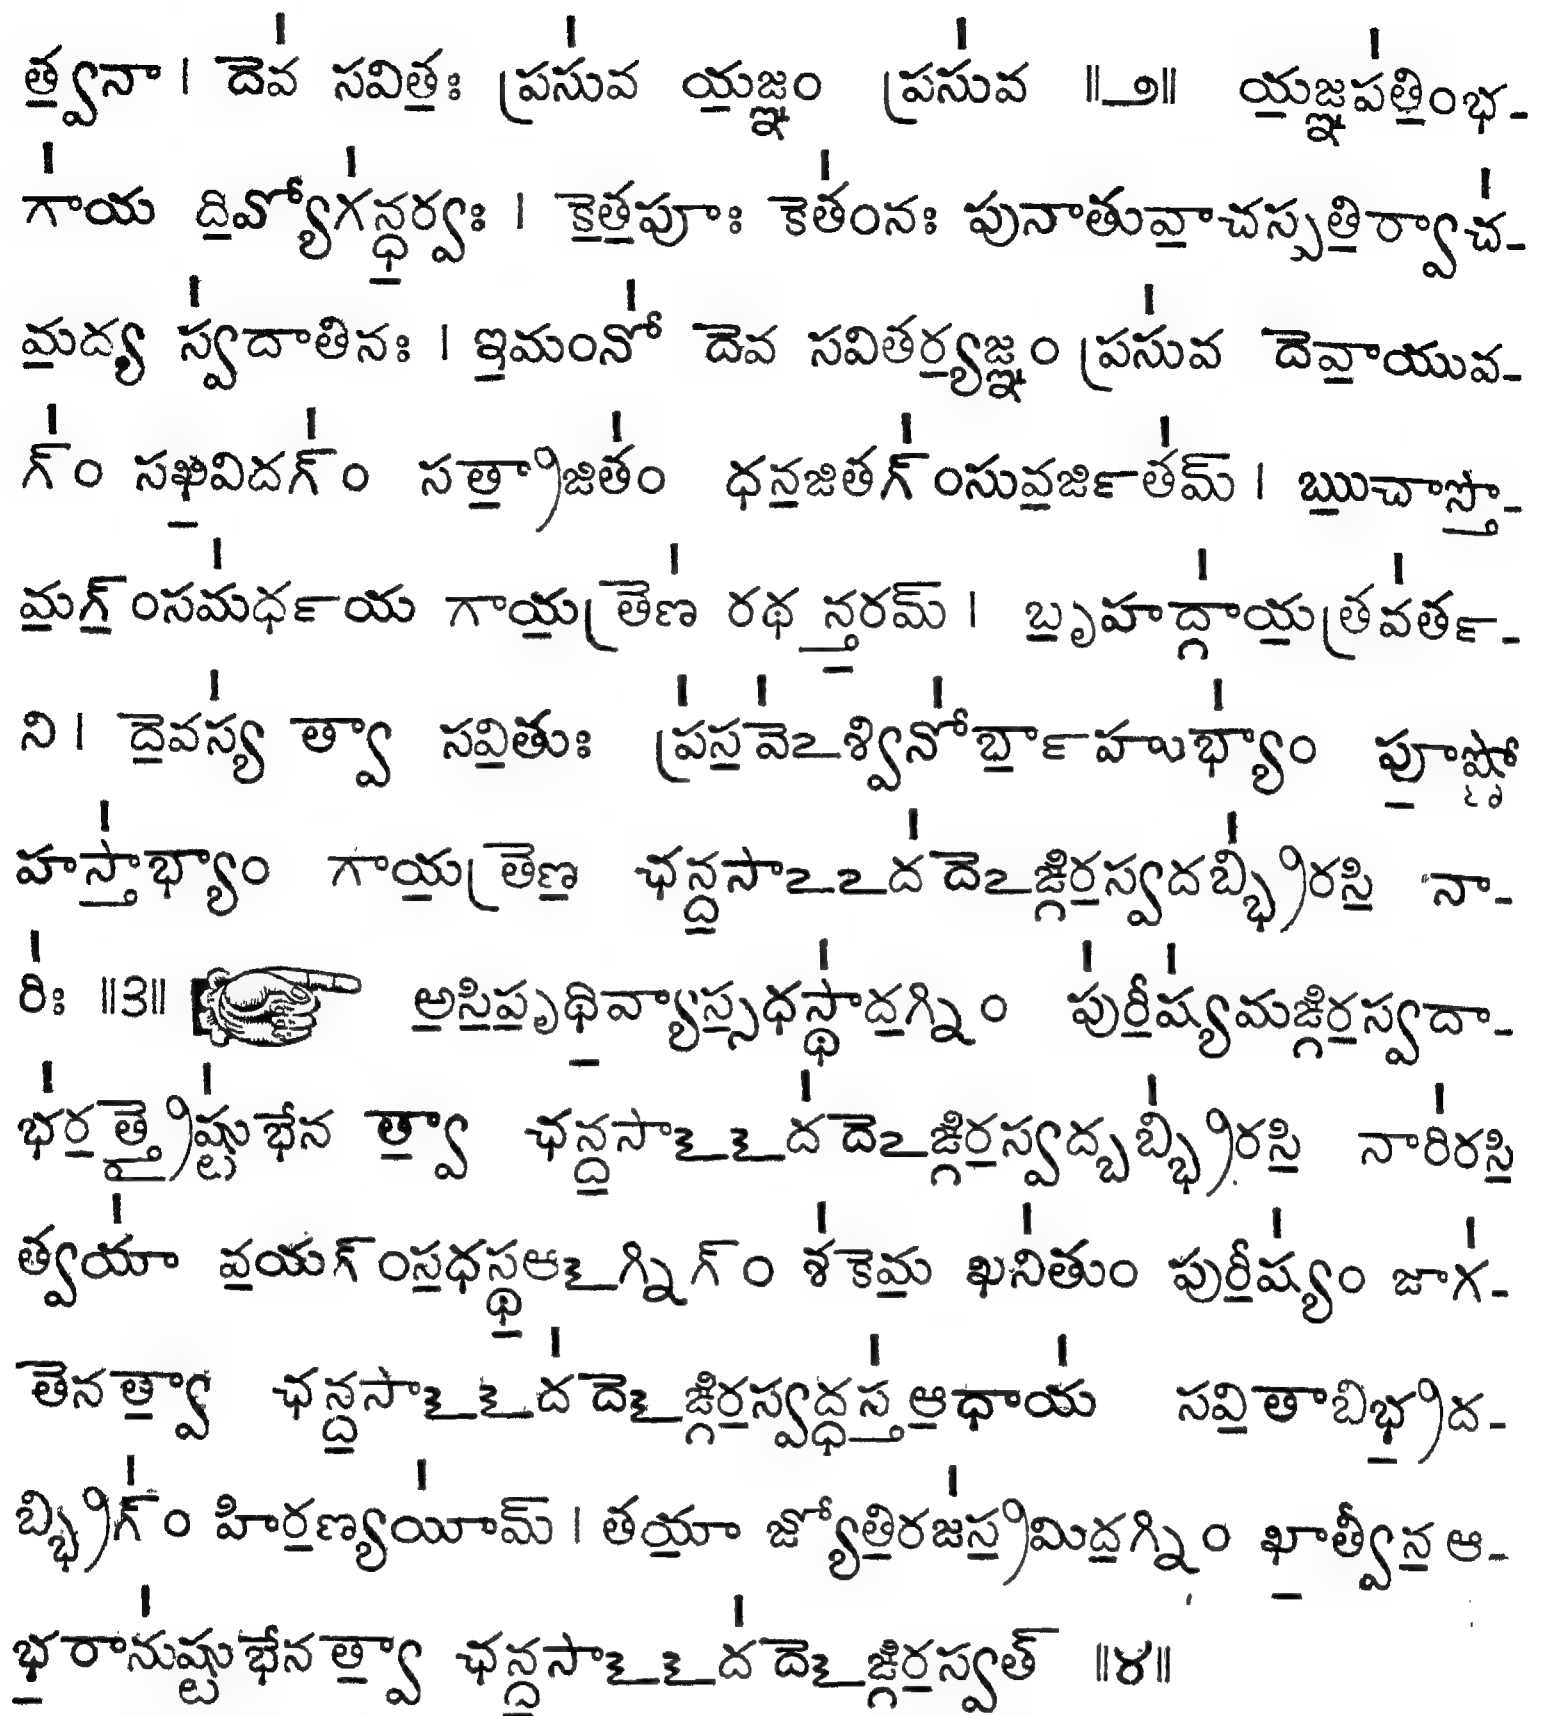 త్॒వనా । దేవ॑ సవితః॒ ప్రసు॑వ య॒జ్ఞం ప్రసు॑వ ॥౨॥ య॒జ్ఞప॑తిం॒భ-
గా॑య ది॒వ్యోగ॑న్ధ॒ర్వః । కే॒త॒పూః కేతం॑నః పునాతువా॒చస్పతి॒ర్వాచ॑-
మ॒ద్య స్వ॑దాతినః । ఇ॒మంనో॑ దేవ సవితర్య॒జ్ఞం ప్రసు॑వ దేవా॒యువ-
గ్ం॑ సఖి॒విదగ్ం॑ సత్రా॒జితం॑ ధన॒జితగ్ం॑సువ॒ర్జిత॑మ్ । ఋ॒చాస్తో-
మ॒గ్ం॒సమ॑ర్ధయ గాయ॒త్రేణ॑ రథన్త॒రమ్ । బృ॒హద్గా॑య॒త్రవ॑ర్త-
ని । దే॒వస్య॑ త్వా సవి॒తుః ప్ర॑స॒వే॑ఽశ్వినో॑ర్బా॒హుభ్యాం॑ పూ॒ష్ణో
హస్తా॑భ్యాం గాయ॒త్రేణ॒ ఛన్ద॒సాఽఽద॑దేఽఙ్గిర॒స్వదబ్భ్రి॑రసి॒ నా-
రిః॑ ॥౩॥ అ॒సి॒పృ॒థి॒వ్యాస్స॒ధస్థా॑ద॒గ్నిం పు॑రీ॒ష్య॑మఙ్గిర॒స్వదా-
భ॑ర॒త్త్రైష్టు॑భేన త్వా॒ ఛన్ద॒సాఽఽద॑దేఽఙ్గిర॒స్వద్బబ్భ్రి॑రసి॒ నారి॑రసి॒
త్వయా॑ వ॒యగ్ంస॒ధస్థ॒ఆఽగ్నిగ్ం శ॑కేమ॒ ఖని॑తుం పురీ॒ష్యం॑ జాగ॑-
తేనత్వా॒ ఛన్ద॒సాఽఽద॑దేఽఙ్గిర॒స్వద్ధస్త॑ఆ॒ధాయ॑ సవి॒తాబిభ్ర॒ద-
బ్భ్రిగ్ం॑ హిర॒ణ్యయీ॑మ్ । తయా॒ జ్యోతి॒రజ॑స్ర॒మిద॒గ్నిం ఖా॒త్వీన॒ ఆ-
భ॒రాను॑ష్టుభేనత్వా॒ ఛన్ద॒సాఽఽద॑దేఽఙ్గిర॒స్వత్ ॥౪॥